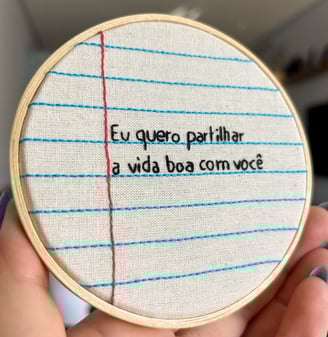 Eu quero partilhar
a vida boa com você